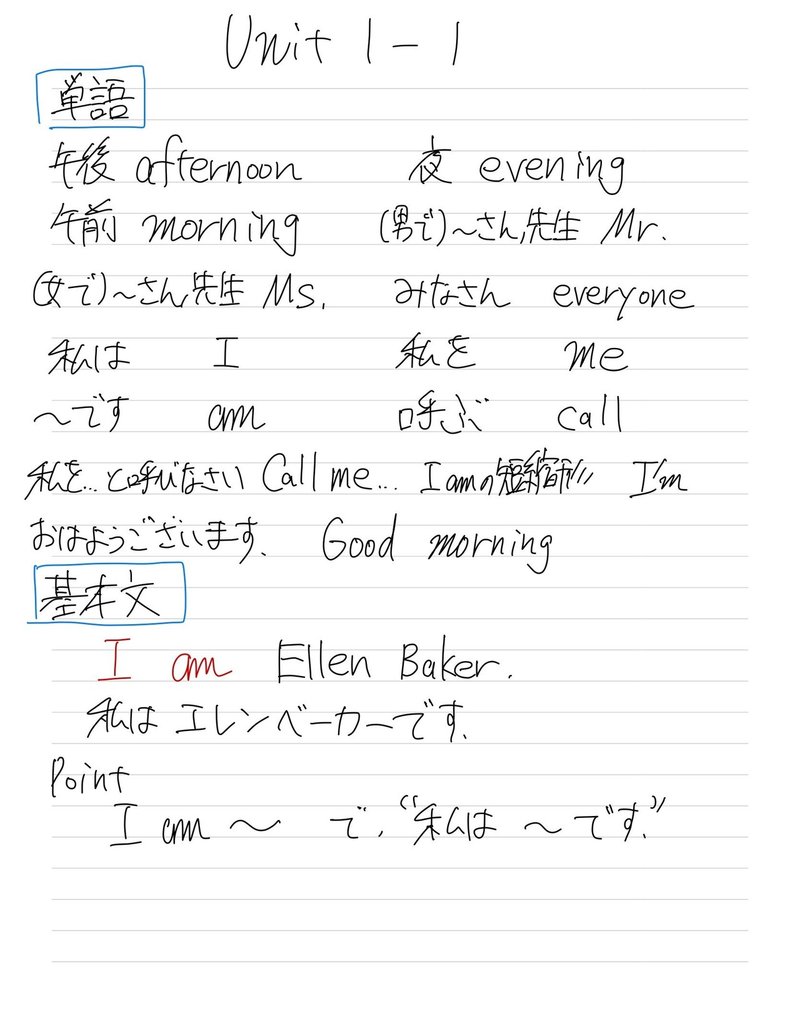 Unit 1-1
単語
午後 afternoon 夜 evening
午前 morning (男で)~さん,先生 Mr.
(女で)~さん,先生 Ms. みなさん everyone
私は I 私を me
~です am 呼ぶ call
私を…と呼びなさい Call me… I amの短縮形 I'm
おはようございます. Good morning
基本文
I am Ellen Baker.
私は エレンベーカーです.
Point
I am ~ で, “私は ~です.”